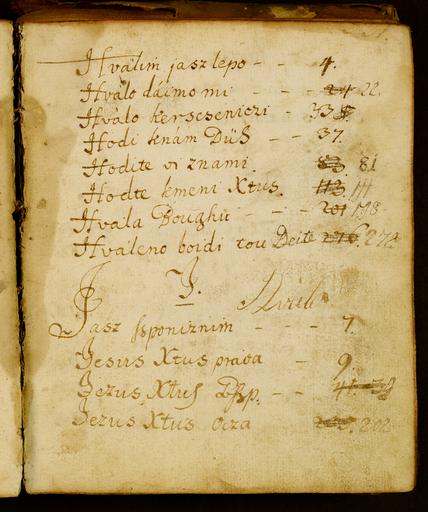 Hvalim jasz lepo - - 4.
Hvalo dáimo mi - - - 24 22.
Hvalo kerscseniczi - 33
Hodi knám Düh - - 37.
Hodite vi znami. 83. 81
Hodte kmeni Xtus. 113. 111
Hvala Boughu - - - 201 198
Hváleno boidi tou Deite 276. 272
J.
Jasz szponiznim - - - 7.
Jesus Xtus práva - 9.
Jezus Xtus - -
Jezus Xtus Ocza 202